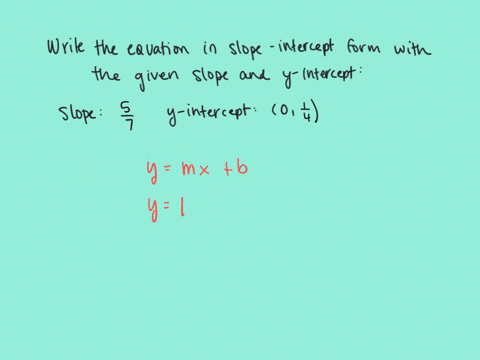 Write the equation in slope-intercept form with
the given slope and y-intercept:
slope: 5/7 y-intercept: (0, 1/4)
y = mx + b
y = |